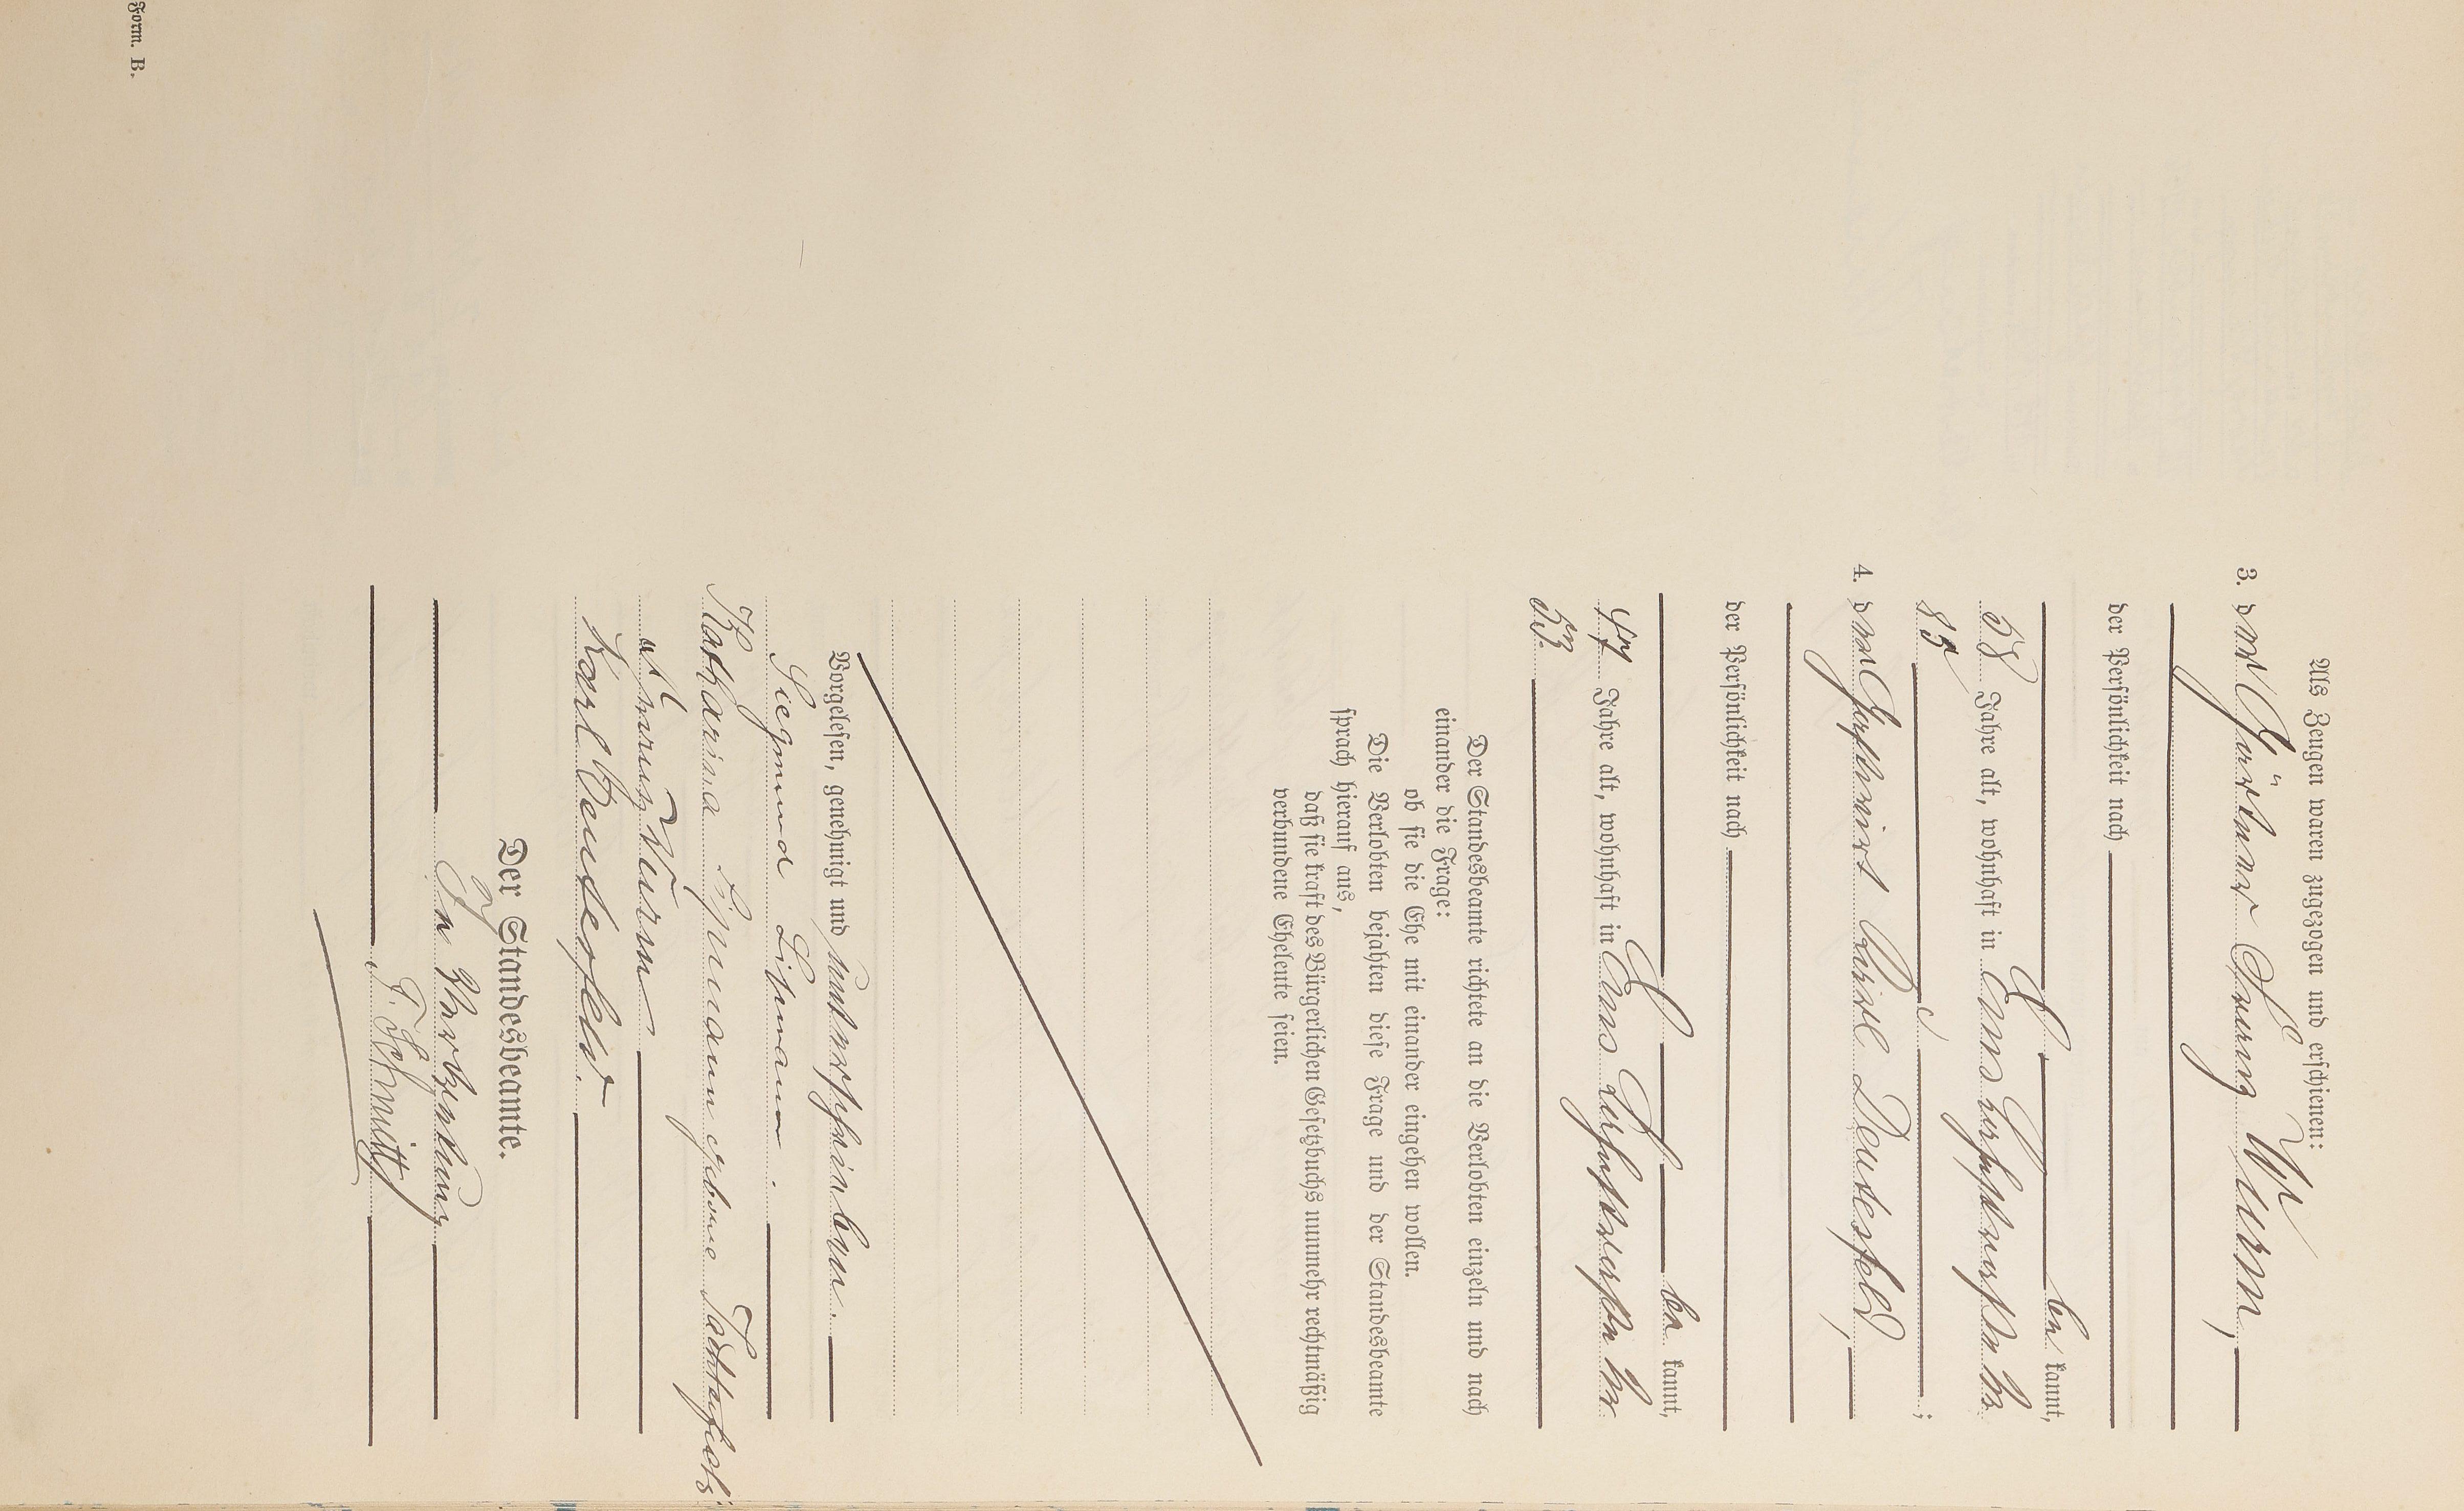 Als Zeugen waren zugezogen und erschienen:
3. der Gärtner Franz Wurm,
der Persönlichkeit nach
be kannt,
58 Jahre alt, wohnhaft in Ems
85;
4. der Gastwirt Karl Deutesfeld,
der Persönlichkeit nach
be kannt,
47 Jahre alt, wohnhaft in Ems
53.
Der Standesbeamte richtete an die Verlobten einzeln und nach
einander die Frage:
ob sie die Ehe mit einander eingehen wollen.
Die Verlobten bejahten diese Frage und der Standesbeamte
sprach hierauf aus,
daß sie kraft des Bürgerlichen Gesetzbuchs nunmehr rechtmäßig
verbundene Eheleute seien.
Vorgelesen, genehmigt und unterschrieben.
Siegmund Lipmann.
Katharina Lipmann geborene
Franz Wurm
Karl Deutesfeld.
Der Standesbeamte.
In Vertretung
F. Schmitt
Form. B.